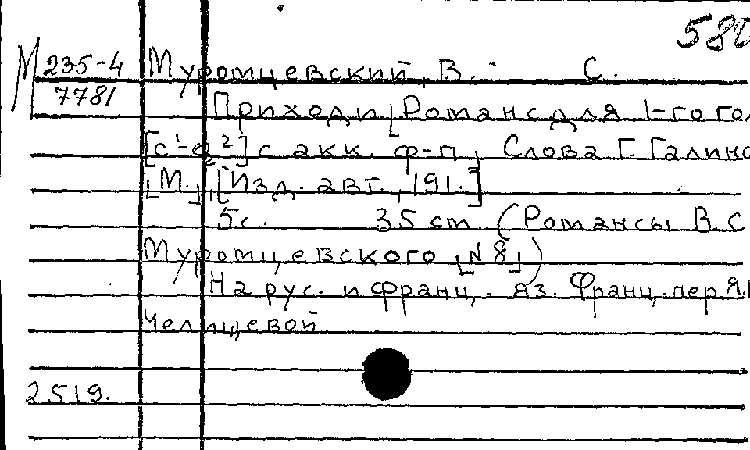 580
М 235-4 Муромцевский, В. С.
7781
Приходи. Романс для 1-го гол
[с¹-g²] с акк. ф-п. Слова Г. Галино
[М.], [Изд. авт., 191.]
5 с. 35 cm (Романсы В С
Муромцевского [№ 8])
На рус. и франц. яз. Франц. пер. Я.
Челищевой
2519.